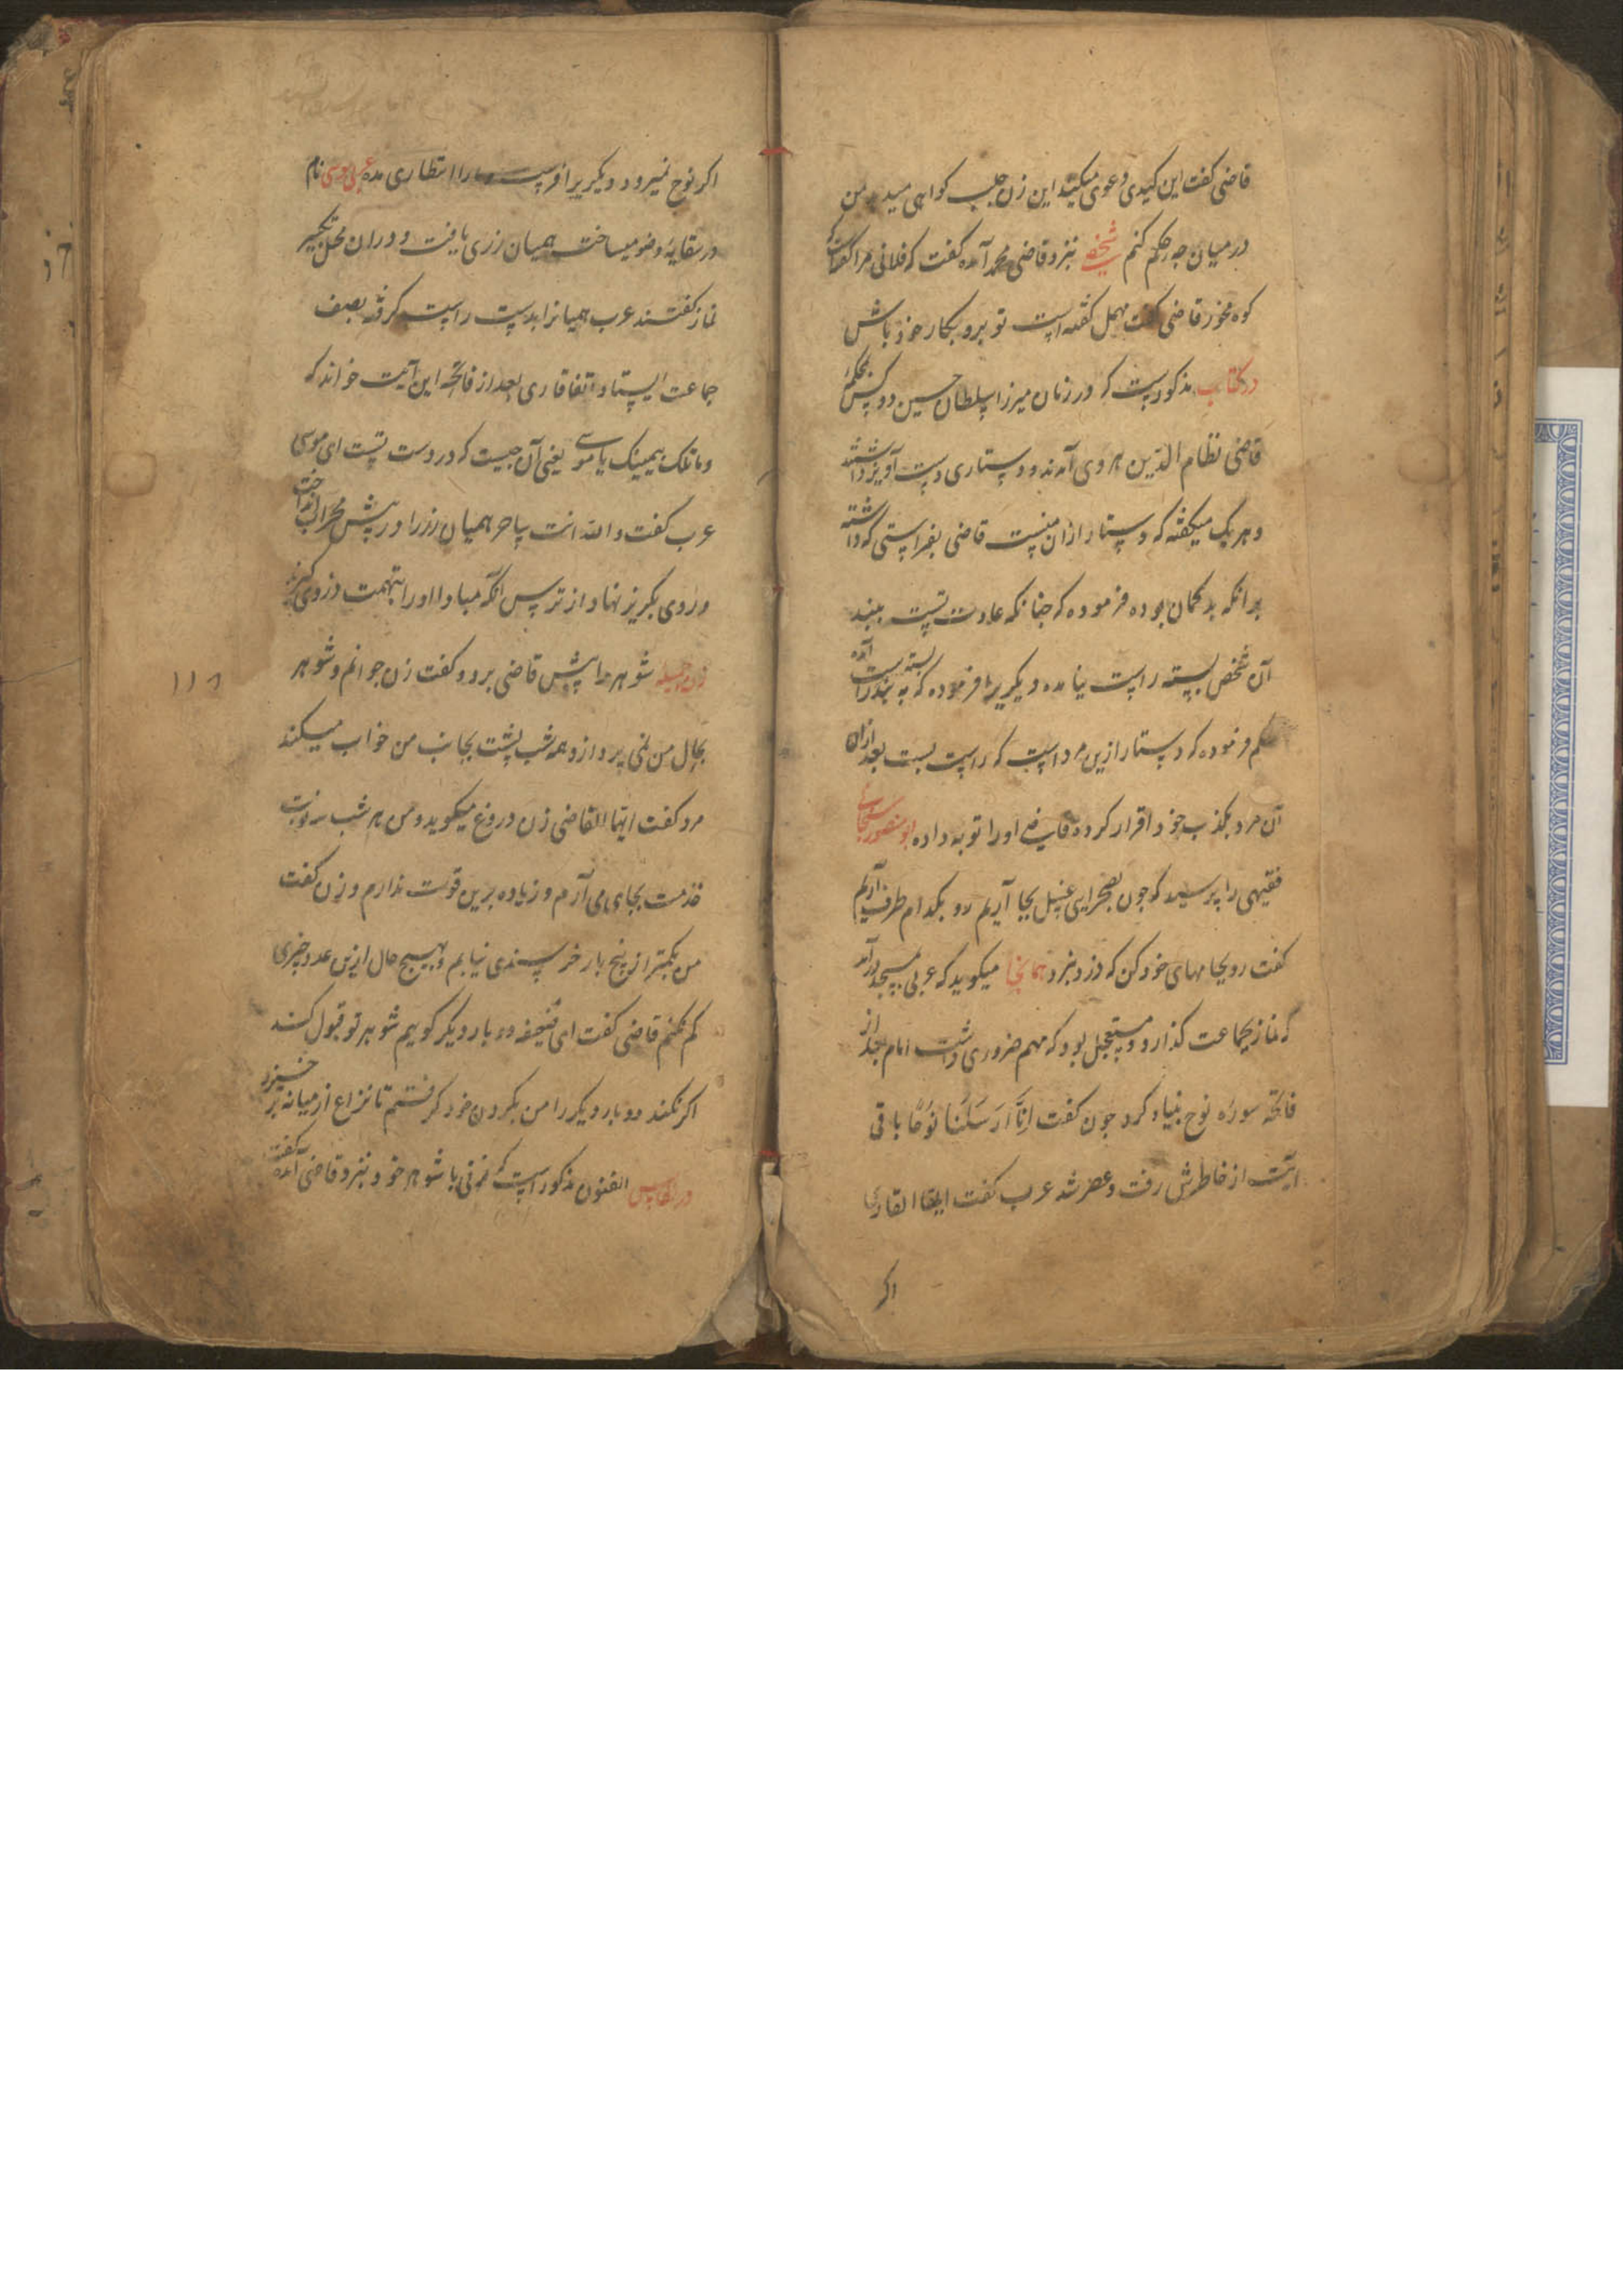 قاضی کفت این کیدی دعوی میکند این زن جلب کواهی میدهد من
در میان چه حکم کنم شخصی بنزد قاضی محمد آمده کفت که فلانی مرا کفت که
کوه مخور قاضی کفت مهمل کفته است تو برو بکار خود باش
در کتاب مذکورست که در زمان میرزا سلطان حسین دو کس بمحکمه
قاضی نظام الدین هروی آمدند و دستاری دست آویز داشتند
و هر یک میکفته که دستار ازان منست قاضی بفراستی که داشته
برانکه بدکمان بوده فرموده که چنانکه عادت تست ببند
آن شخص بسته راست نیامده دیکریرا فرموده که به بند راست بسته آمده
حکم فرموده که دستار ازین مرد است که راست بست بعد ازان
آن مرد بکذب خود اقرار کرده قاضی اورا توبه داده ابو منصور
فقیهی را پرسید که چون بصحرایی غسل بجا آریم رو بکدام طرف آریم
کفت رو بجامهای خود کن که دزد نبرد همانجا میکوید که عربی بمسجد درآمد
که نماز بجماعت کذارد و مستعجل بود که مهم ضروری داشت امام بعد از
فاتحه سوره نوح بنیاد کرد چون کفت اِنَّا اَرسَلنَا نُوحًا باقی
آیت از خاطرش رفت و عصر شد عرب کفت ایها القاری
اکر
اکر نوح نمیرود دیکریرا فرست و مارا انتظاری مده عربی موسی نام
در سقایه وضو میساخت همیان زری یافت و دران محل تکبیر
نماز کفتند عرب همیانرا بدست راست کرفته بصف
جماعت ایستاد اتفاقا قاری بعد از فاتحه این آیت خواند که
وما تلک بیمینک یا موسی یعنی آن چیست که در دست تست ای موسی
عرب کفت والله انت ساحر همیان زر را در پیش محراب انداخت
و روی بکریز نهاد از ترس آنکه مبادا اورا بتهمت دزدی کیرند
زن جمیله شوهر را پیش قاضی برد و کفت زن جوانم و شوهر
بحال من نمی پردازد و همه شب پشت بجانب من خواب میکند
مرد کفت ایها القاضی زن دروغ میکوید و من هر شب سه نوبت
خدمت بجای می آرم و زیاده برین قوت ندارم و زن کفت
من بکمتر از پنج بار خرسندی نیابم و بهیچ حال ازین عدد چیزی
کم نکنم قاضی کفت ای ضعیفه دو بار دیکر کویم شوهر تو قبول کند
اکر نکند دو بار دیکر را من بکردن خود کرفتم تا نزاع از میانه بر خیزد
در نفایس الفنون مذکور است که زنی با شوهر خود بنزد قاضی آمده کفت
۱۱۸